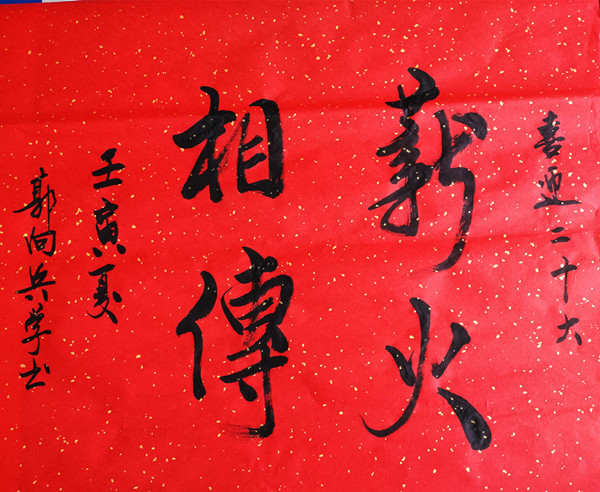 喜迎二十大
薪火
相傳
壬寅夏
郭向兵学书